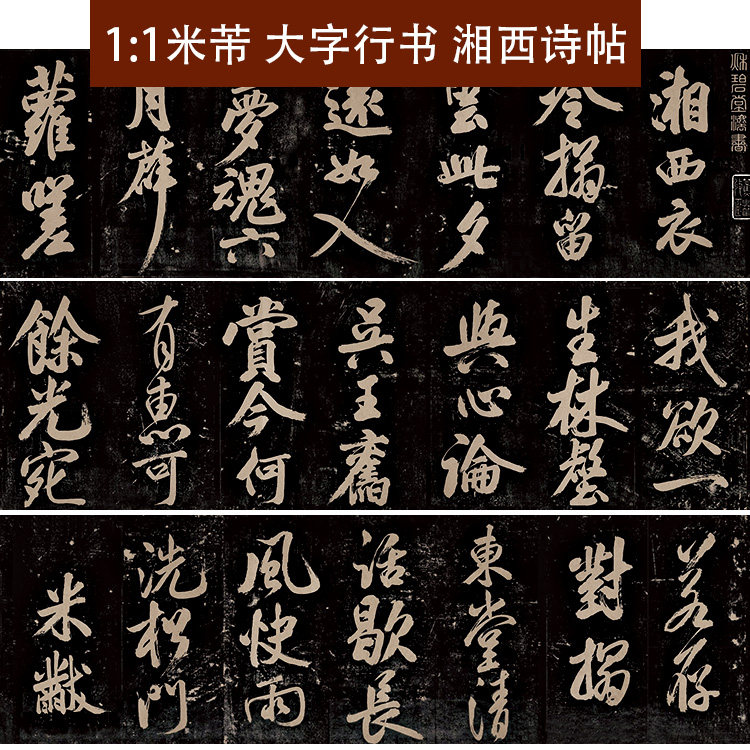 1:1米芾 大字行书 湘西诗帖
秋碧堂灋書
湘西衣
冷搨留
雲此夕
遠如入
夢魂六
月薜
蘿嗟
我欲一
生林壑
與心論
吳王舊
賞今何
有惠可
餘光宛
若存
對搨
東堂清
話歇長
風快雨
洗松門
米黻